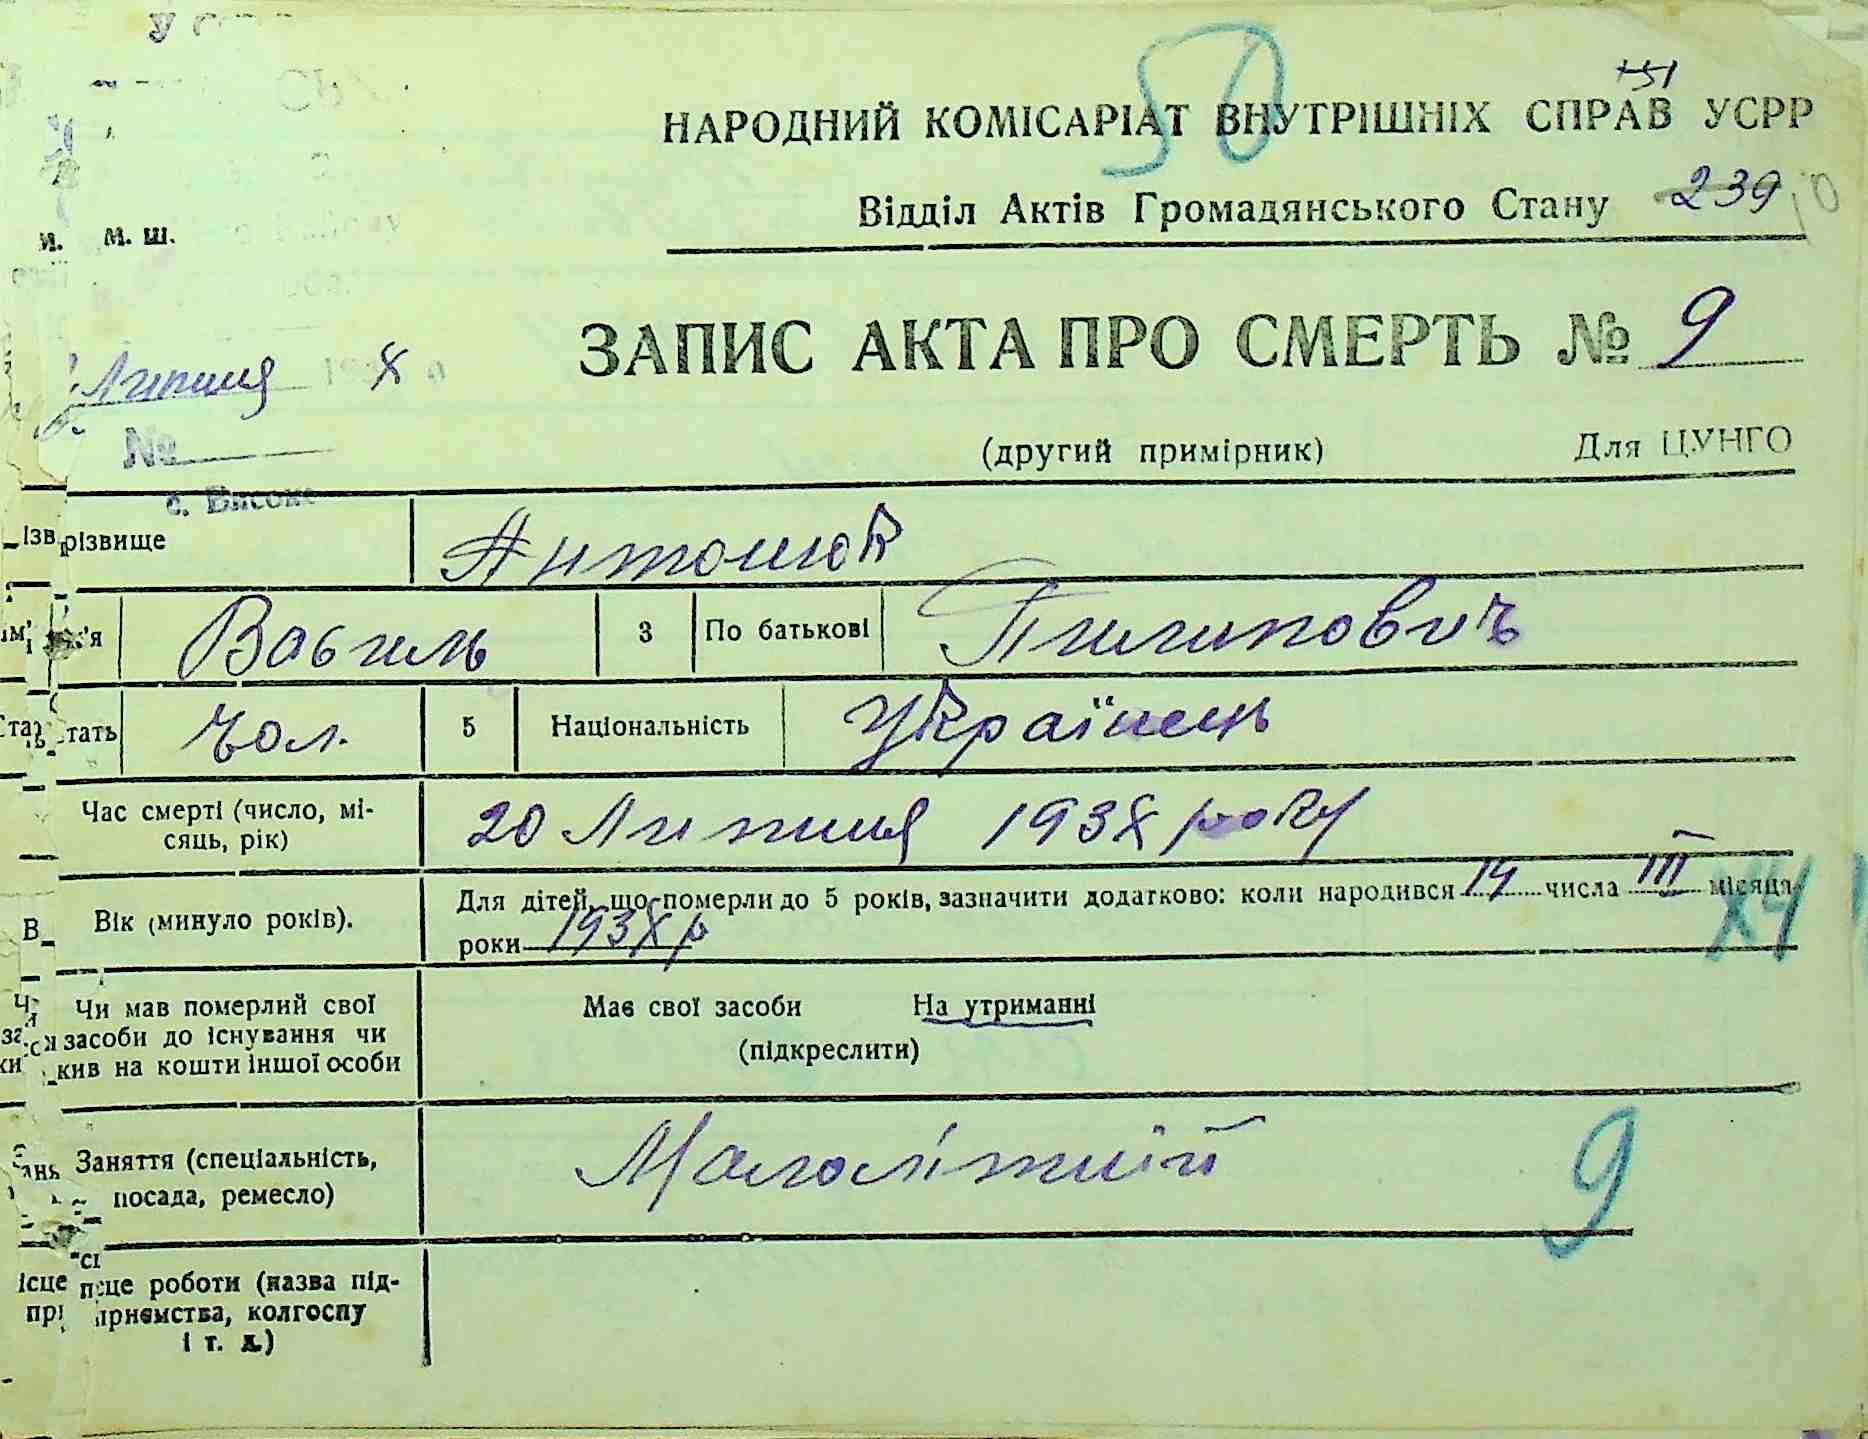 50
+51
НАРОДНИЙ КОМІСАРІАТ ВНУТРІШНІХ СПРАВ УСРР
Відділ Актів Громадянського Стану 239
м. ш.
ЗАПИС АКТА ПРО СМЕРТЬ № 9
Липня 193
№
(другий примірник) Для ЦУНГО
с. Високе
різвище Антонюк
м'я Василь 3 По батькові Пилипович
Стать чол. 5 Національність Українець
Час смерті (число, мі-
сяць, рік)
20 Липня 1938 року
Вік (минуло років).
Для дітей, що померли до 5 років, зазначити додатково: коли народився 14 числа III місяця
роки 1938 р
Чи мав померлий свої
засоби до існування чи
жив на кошти іншої особи
Має свої засоби На утриманні
(підкреслити)
Заняття (спеціальність,
посада, ремесло)
Малолітній
9
ісце роботи (назва під-
приємства, колгоспу
і т. д.)